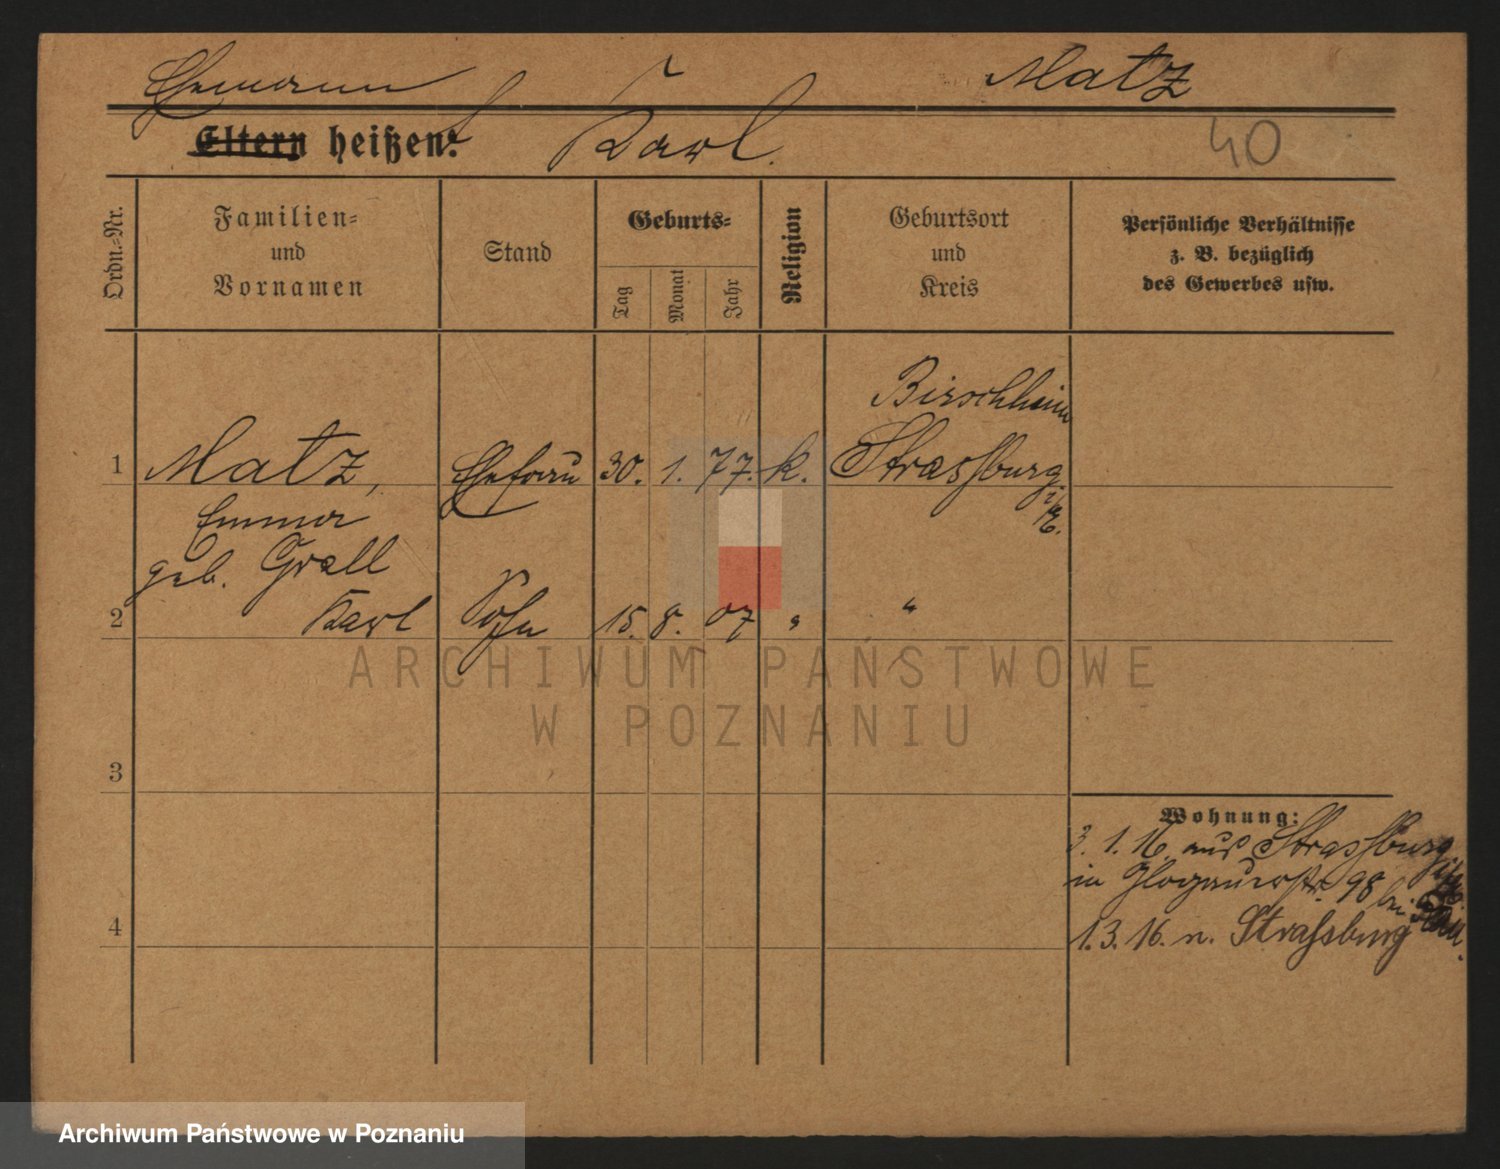 Ehemann Matz
Eltern heißen: Karl.
40
Ordn.-Nr.
Familien-
und
Vornamen
Stand
Geburts-
Tag
Monat
Jahr
Religion
Geburtsort
und
Kreis
Persönliche Verhältnisse
z. B. bezüglich
des Gewerbes usw.
Birschheim
1 Matz, Ehefrau 30. 1. 77. k. Strassburg
i/E.
Emma
geb. Grall
2 Karl Sohn 15. 8. 07 " "
3
Wohnung:
3. 1. 16. aus Strassburg i/E.
in Glogauerstr. 98 bei
4
1.3.16. n. Strassburg
ARCHIWUM PAŃSTWOWE
W POZNANIU
Archiwum Państwowe w Poznaniu